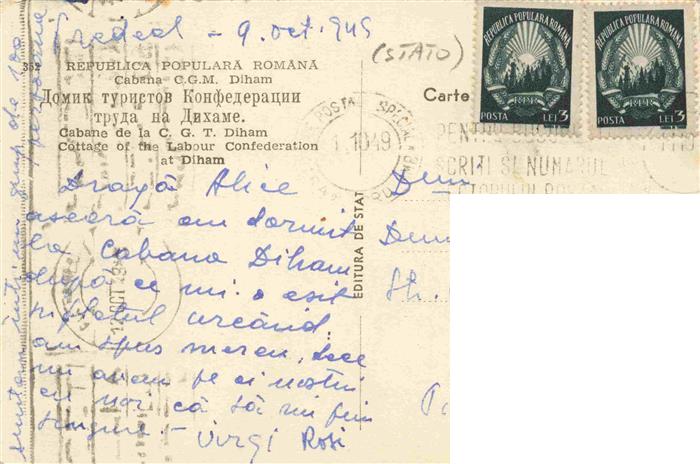 Predeal - 9. oct. 1949
(STATO)
REPUBLICA POPULARĂ ROMÂNĂ
Cabana C.G.M. Diham
Домик туристов Конфедерации
труда на Дихаме.
Cabane de la C. G. T. Diham
Cottage of the Labour Confederation
at Diham
Carte
EDITURA DE STAT
REPUBLICA POPULARA ROMANA
RPR
POSTA LEI 3
REPUBLICA POPULARA ROMANA
RPR
POSTA LEI 3
POSTA
1.1049
PENTRU
SCRITI SI NUMARUL
12 OCT 49
Dragă Alice
aseară am dormit
la Cabana Diham
după ce mi-a esit
sufletul urcând.
am spus mereu, dece
nu avem pe ai noștri
cu noi, că să nu fim
singure. - Virgi Rosi
suntem într'un grup de 100
persoane
Dem
Str.